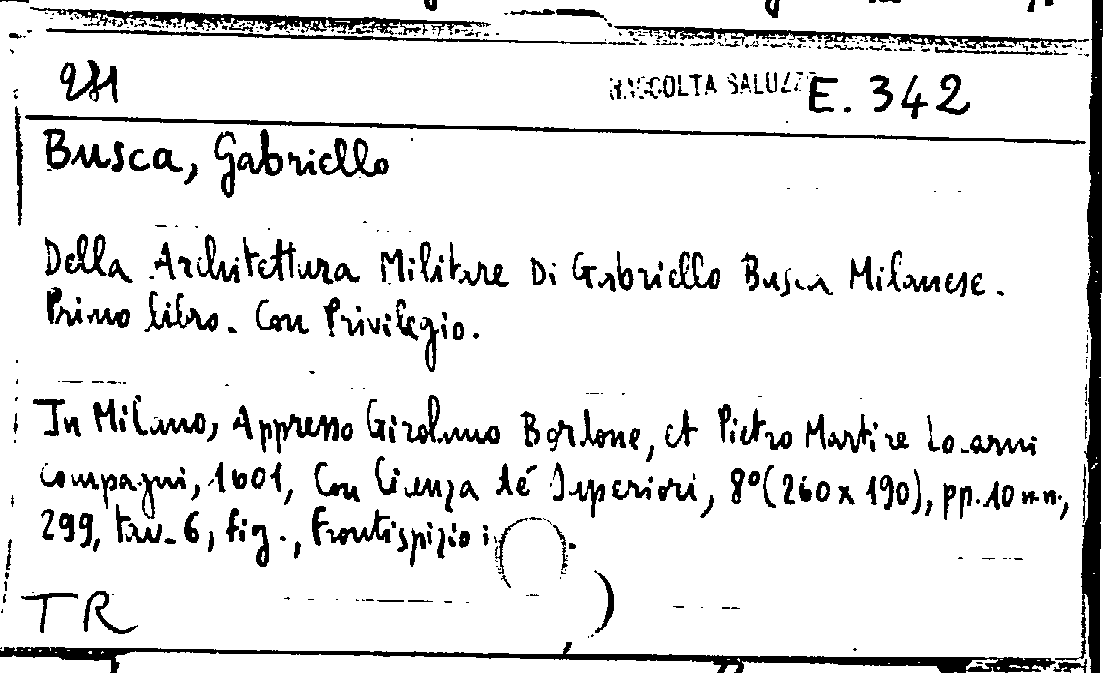 231 RACCOLTA SALUZZO E. 342
Busca, Gabriello
Della Architettura Militare Di Gabriello Busca Milanese.
Primo libro. Con Privilegio.
In Milano, Appresso Girolamo Bordone, et Pietro Martire Locarni
compagni, 1601, Con licenza de' Superiori, 8° (260 x 190), pp. 10 n.n.,
299, tav. 6, fig., Frontispizio
TR